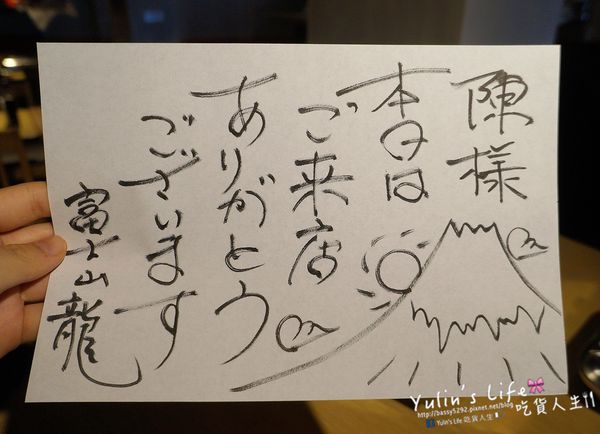 陳様
本日は
ご来店
ありがとう
ございます
富士山龍
Yulin's Life
http://bassy5292.pixnet.net/blog
Yulin's Life 吃貨人生
吃貨人生!!